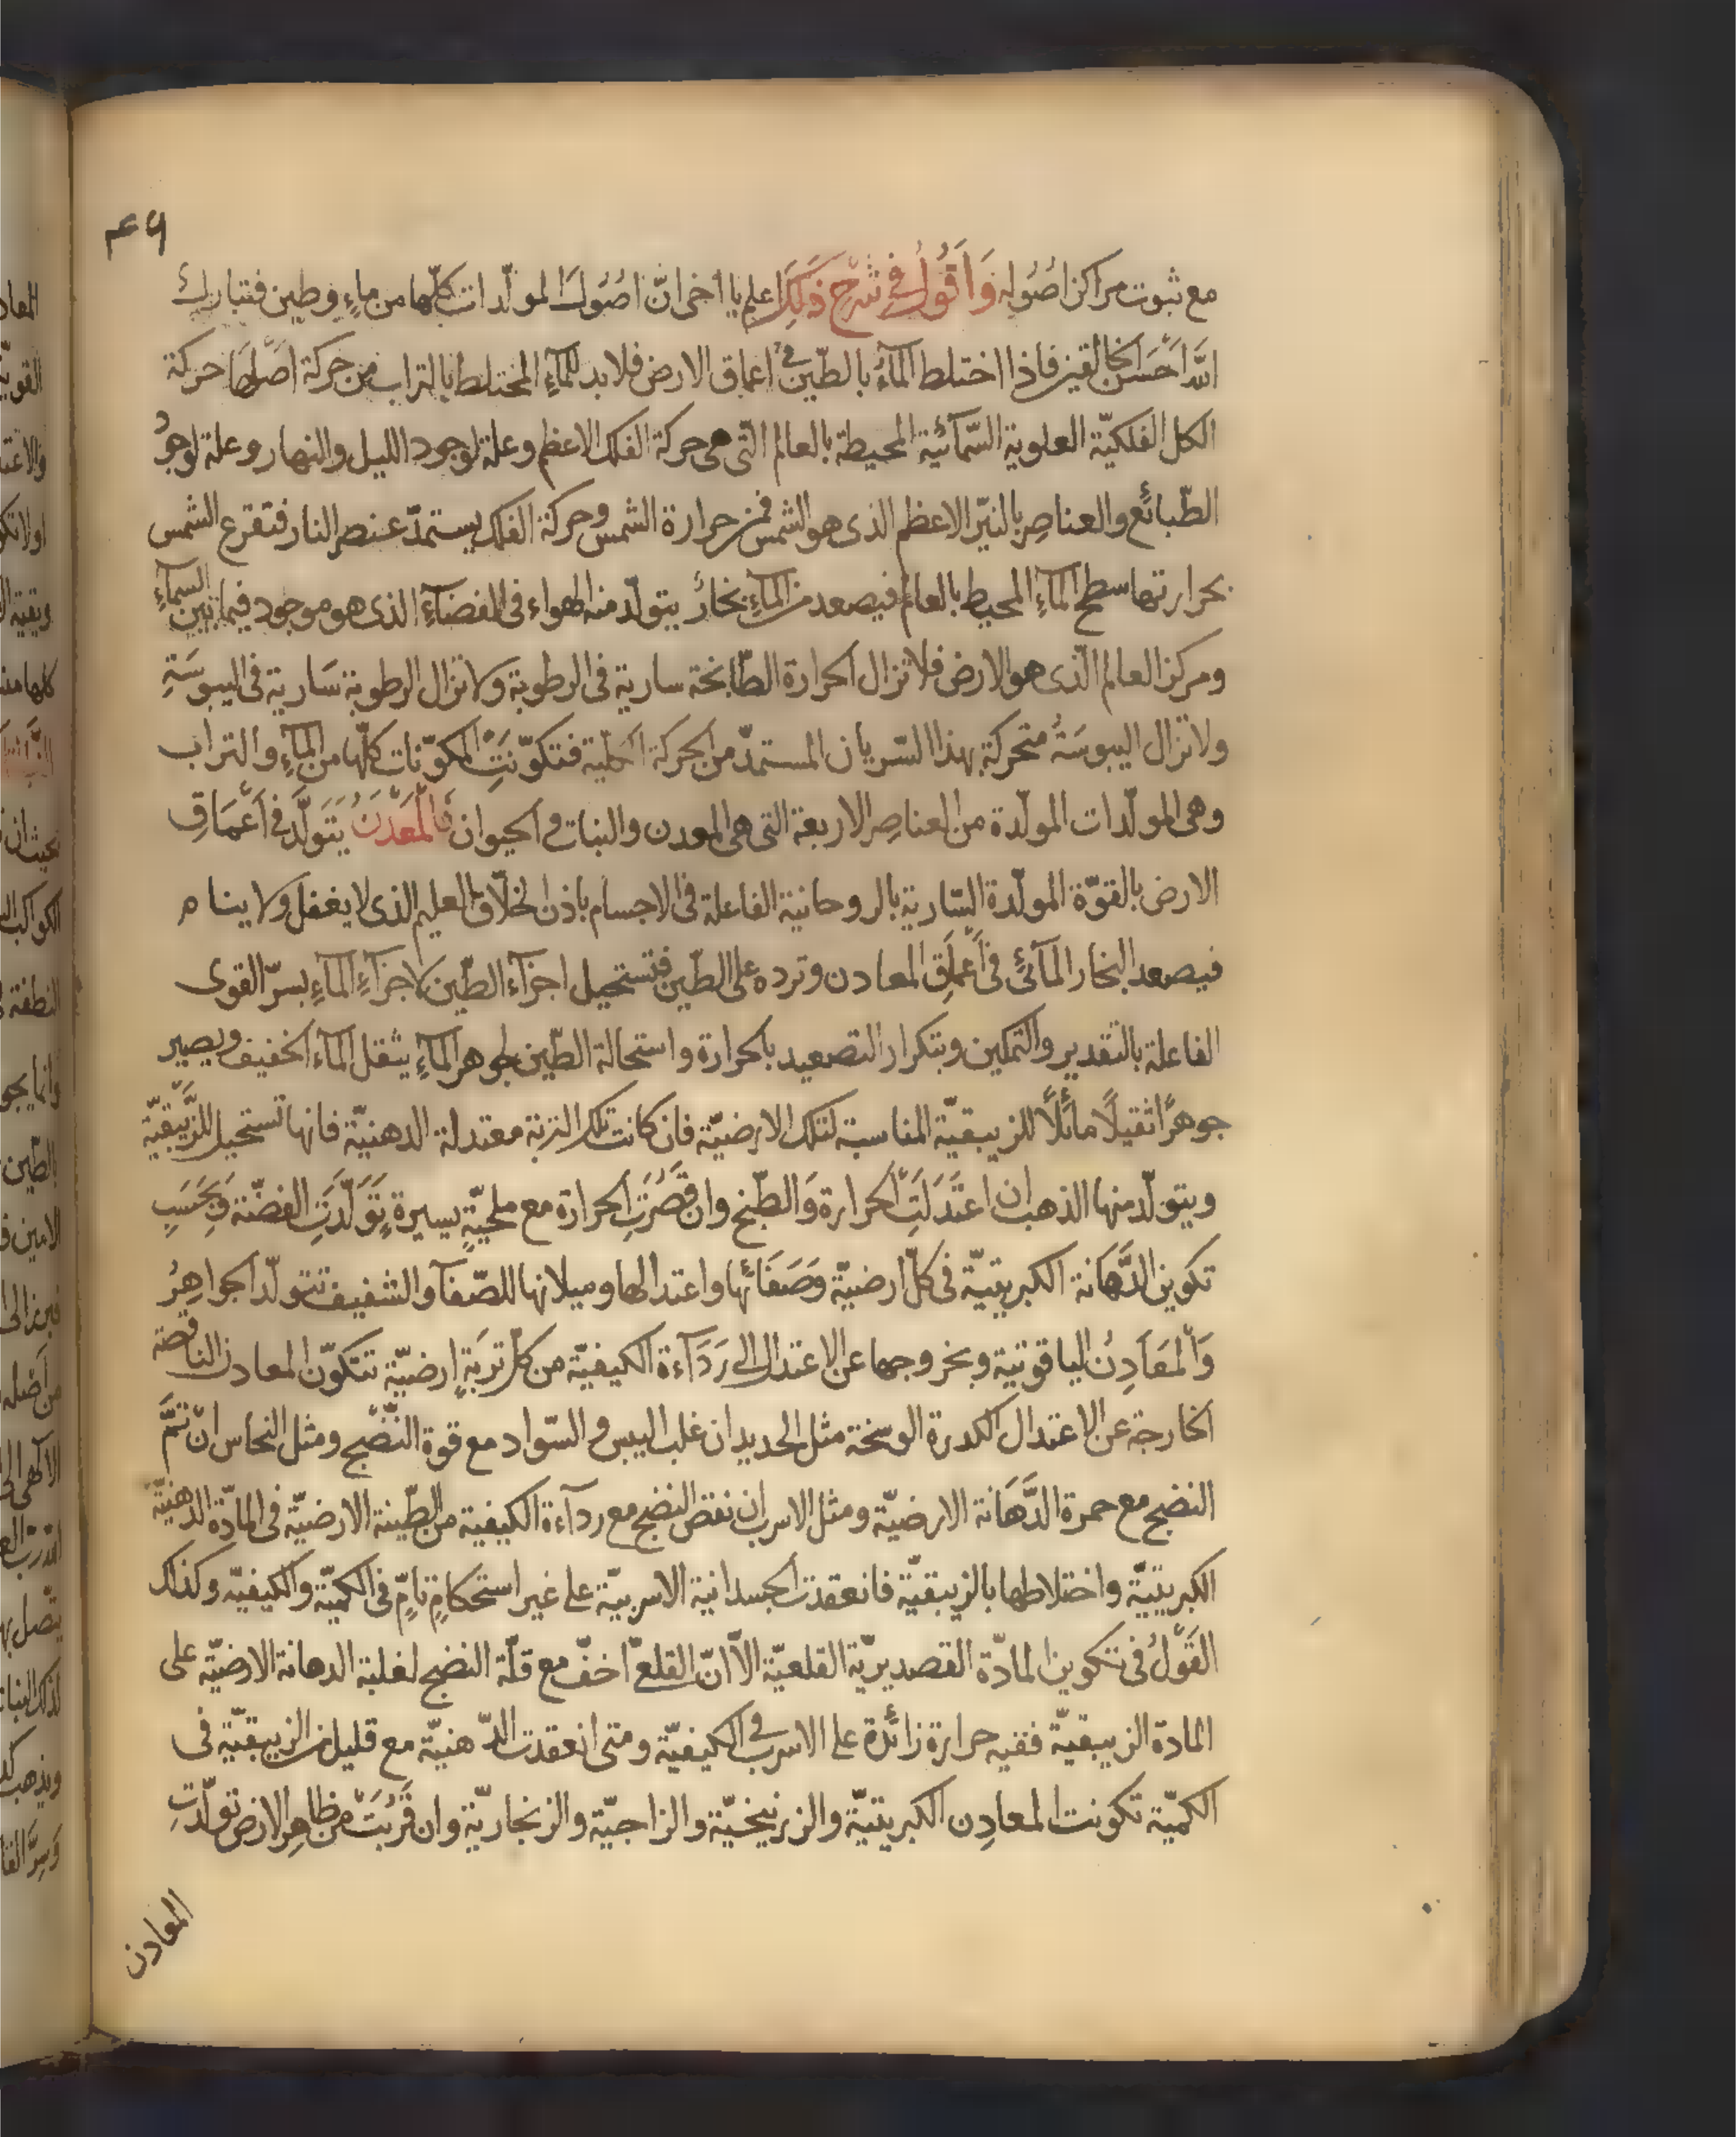 ٤٦
مع ثبوت مراكز اصُوله وَاَقُولُ في شَرْح ذَلكَ اعلم يا اخى انّ اصُولَ المولّدات كلّها من ماءٍ وطين فتبارك
اللّه اَحْسَن الخالقين فاذا اختلط المآءُ بالطّين فى اعماق الارض فلا بد للمآءِ المختلط بالتراب من حركة اصْلها حركة
الكل الفلكيّة العلوية السّمآئيّة المحيطة بالعالم الّتى هى حركة الفلك الاعظم وعلة لوجود الليل والنهار وعلة لوجودُ
الطّبائع والعناصِر بالنيّر الاعظم الذى هو الشمس فمن حرارة الشمس وحركة الفلك يستمدّ عنصر النار فتقرع الشمس
بحرارتها سطح المآءِ المحيط بالعالم فيصعد من المآءِ بخارٌ يتولّد منه الهواء فى الفضآءِ الذى هو موجود فيما بين السمآءِ
ومركز العالم الّذى هو الارض فلا تزال الحرارة الطّابخة سارية فى الرطوبة ولا تزال الرطوبة سَارية فى اليبوسَةِ
ولا تزال اليبوسَةُ متحركة بهذا السّريان المستمدّ من الحركة الكلية فتكوّنَتِ المكوّنات كلّها من المآءِ والتراب
وهى المولّدات المولّدة من العناصِر الاربعة التى هى المعدن والنبات والحيوان فَالْمَعْدَنُ يَتَولَّد فى اَعْمَاقِ
الارض بالقوّة المولّدة السّارية بالروحانية الفاعلة فى الاجسام باذن الخلّاق العليم الذى لا يغفل ولا ينام
فيصعد البخار المآئىّ فى اَعْماقِ المعادن وترده على الطّين فتستحيل اجزآء الطّين لاجزآءِ المآءِ بسرّ القوى
الفاعلة بالتقدير والتمكين وبتكرار التصعيد بالحرارة واستحالة الطّين لجوهر المآءِ يثقل المآء الخفيف ويصير
جوهرًا ثقيلًا مائلًا للزيبقيّة المناسبة لتلك الارضيّة فان كانت تلك التربة معتدلة الدهنيّة فانها تستحيل للزّيبقيّة
ويتولّد منها الذهب ان اعتَدَلَتِ الحرارة وَالطّبخ وان قَصُرَتِ الحرارة مع ملحيّةٍ يسيرة تَوَلّدَتِ الفضّة وَبحَسَبِ
تكوين الدَّهانة الكبريتيّة فى كلّ ارضيّة وَصَفَائها واعتدالها وميلانها للصّفآ والشفيف تتولّد الجواهِرُ
وَالْمَعَادِنُ الياقوتية وبخروجها عن الاعتدال الى رَدَآءة الكيفيّة من كلّ تربَةٍ ارضيّة تتكوّن المعادن الناقصة
الخارجة عن الاعتدال الكدرة الوسخة مثل الحديد ان غلب اليبس والسّواد مع قوة النّضْج ومثل النحاس انْ تَمَّ
النضج مع حمرة الدَّهَانة الارضيّة ومثل الاسرب ان نقص النضج مع ردآءة الكيفية من الطّينة الارضيّة فى المادّة الدهنيّة
الكبريتيّة واختلاطها بالزيبقيّة فانعقدت الجسدانية الاسربيّة على غير استحكامٍ تامٍّ فى الكميّة والكيفيّة وكذلك
القَوْلُ فى تكوين المادّة القصديريّة القلعيّة الّا انّ القلعىّ اخفّ مع قلّة النضج لغلبة الدهانة الارضيّة على
المادة الزيبقيّة ففيه حرارة زائدة على الاسرب فى الكيفيّة ومتى انعقدت الدّهنيّة مع قليل من الزيبقيّة فى
الكميّة تكونت المعادِن الكبريتيّة والزرنيخيّة والزاجيّة والزنجاريّة وان قَرُبَتْ من ظاهِر الارض تولّدتِ
المعادن